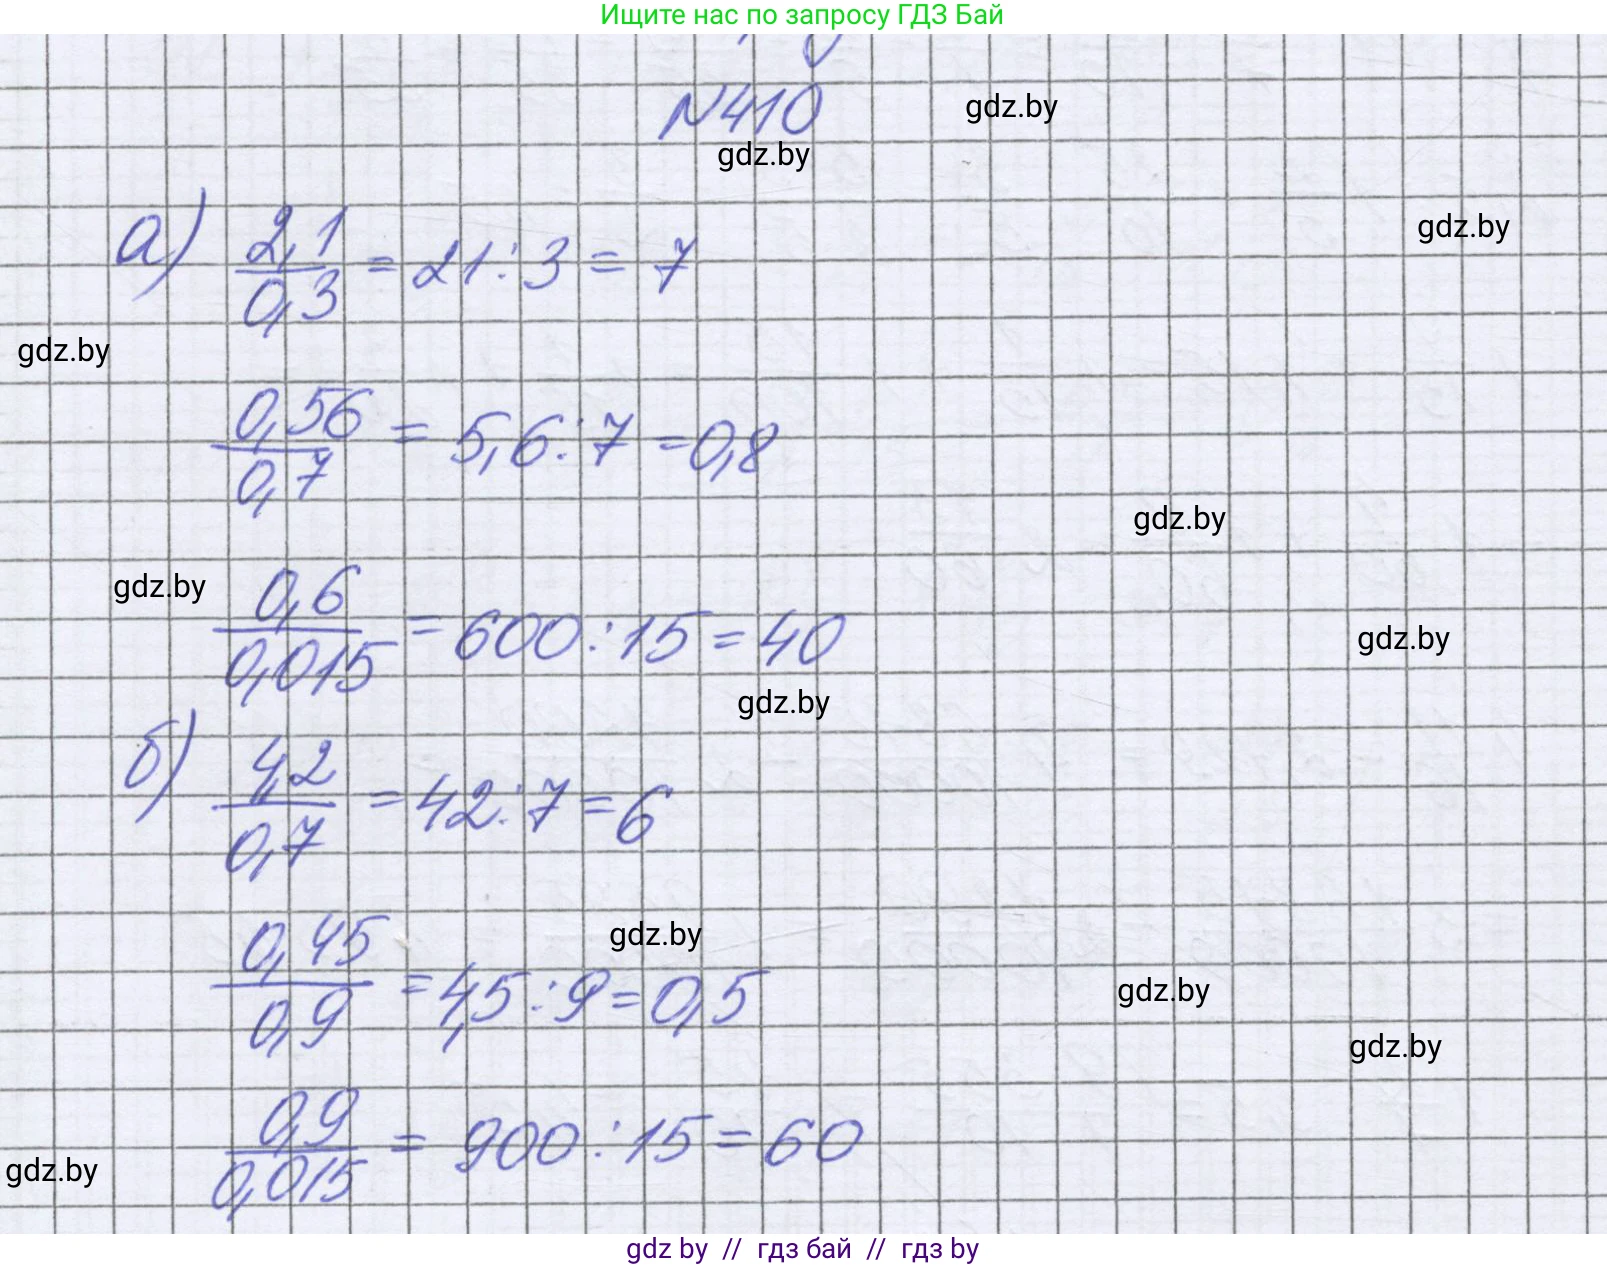 Ищите нас по запросу ГДЗ Бай
№410
gdz.by
gdz.by
gdz.by
а) 2,1/0,3 = 21:3 = 7
gdz.by
0,56/0,7 = 5,6:7 = 0,8
gdz.by
gdz.by
0,6/0,015 = 600:15 = 40
gdz.by
gdz.by
б) 4,2/0,7 = 42:7 = 6
gdz.by
0,45/0,9 = 4,5:9 = 0,5
gdz.by
gdz.by
0,9/0,015 = 900:15 = 60
gdz.by
gdz by // гдз бай // гдз by